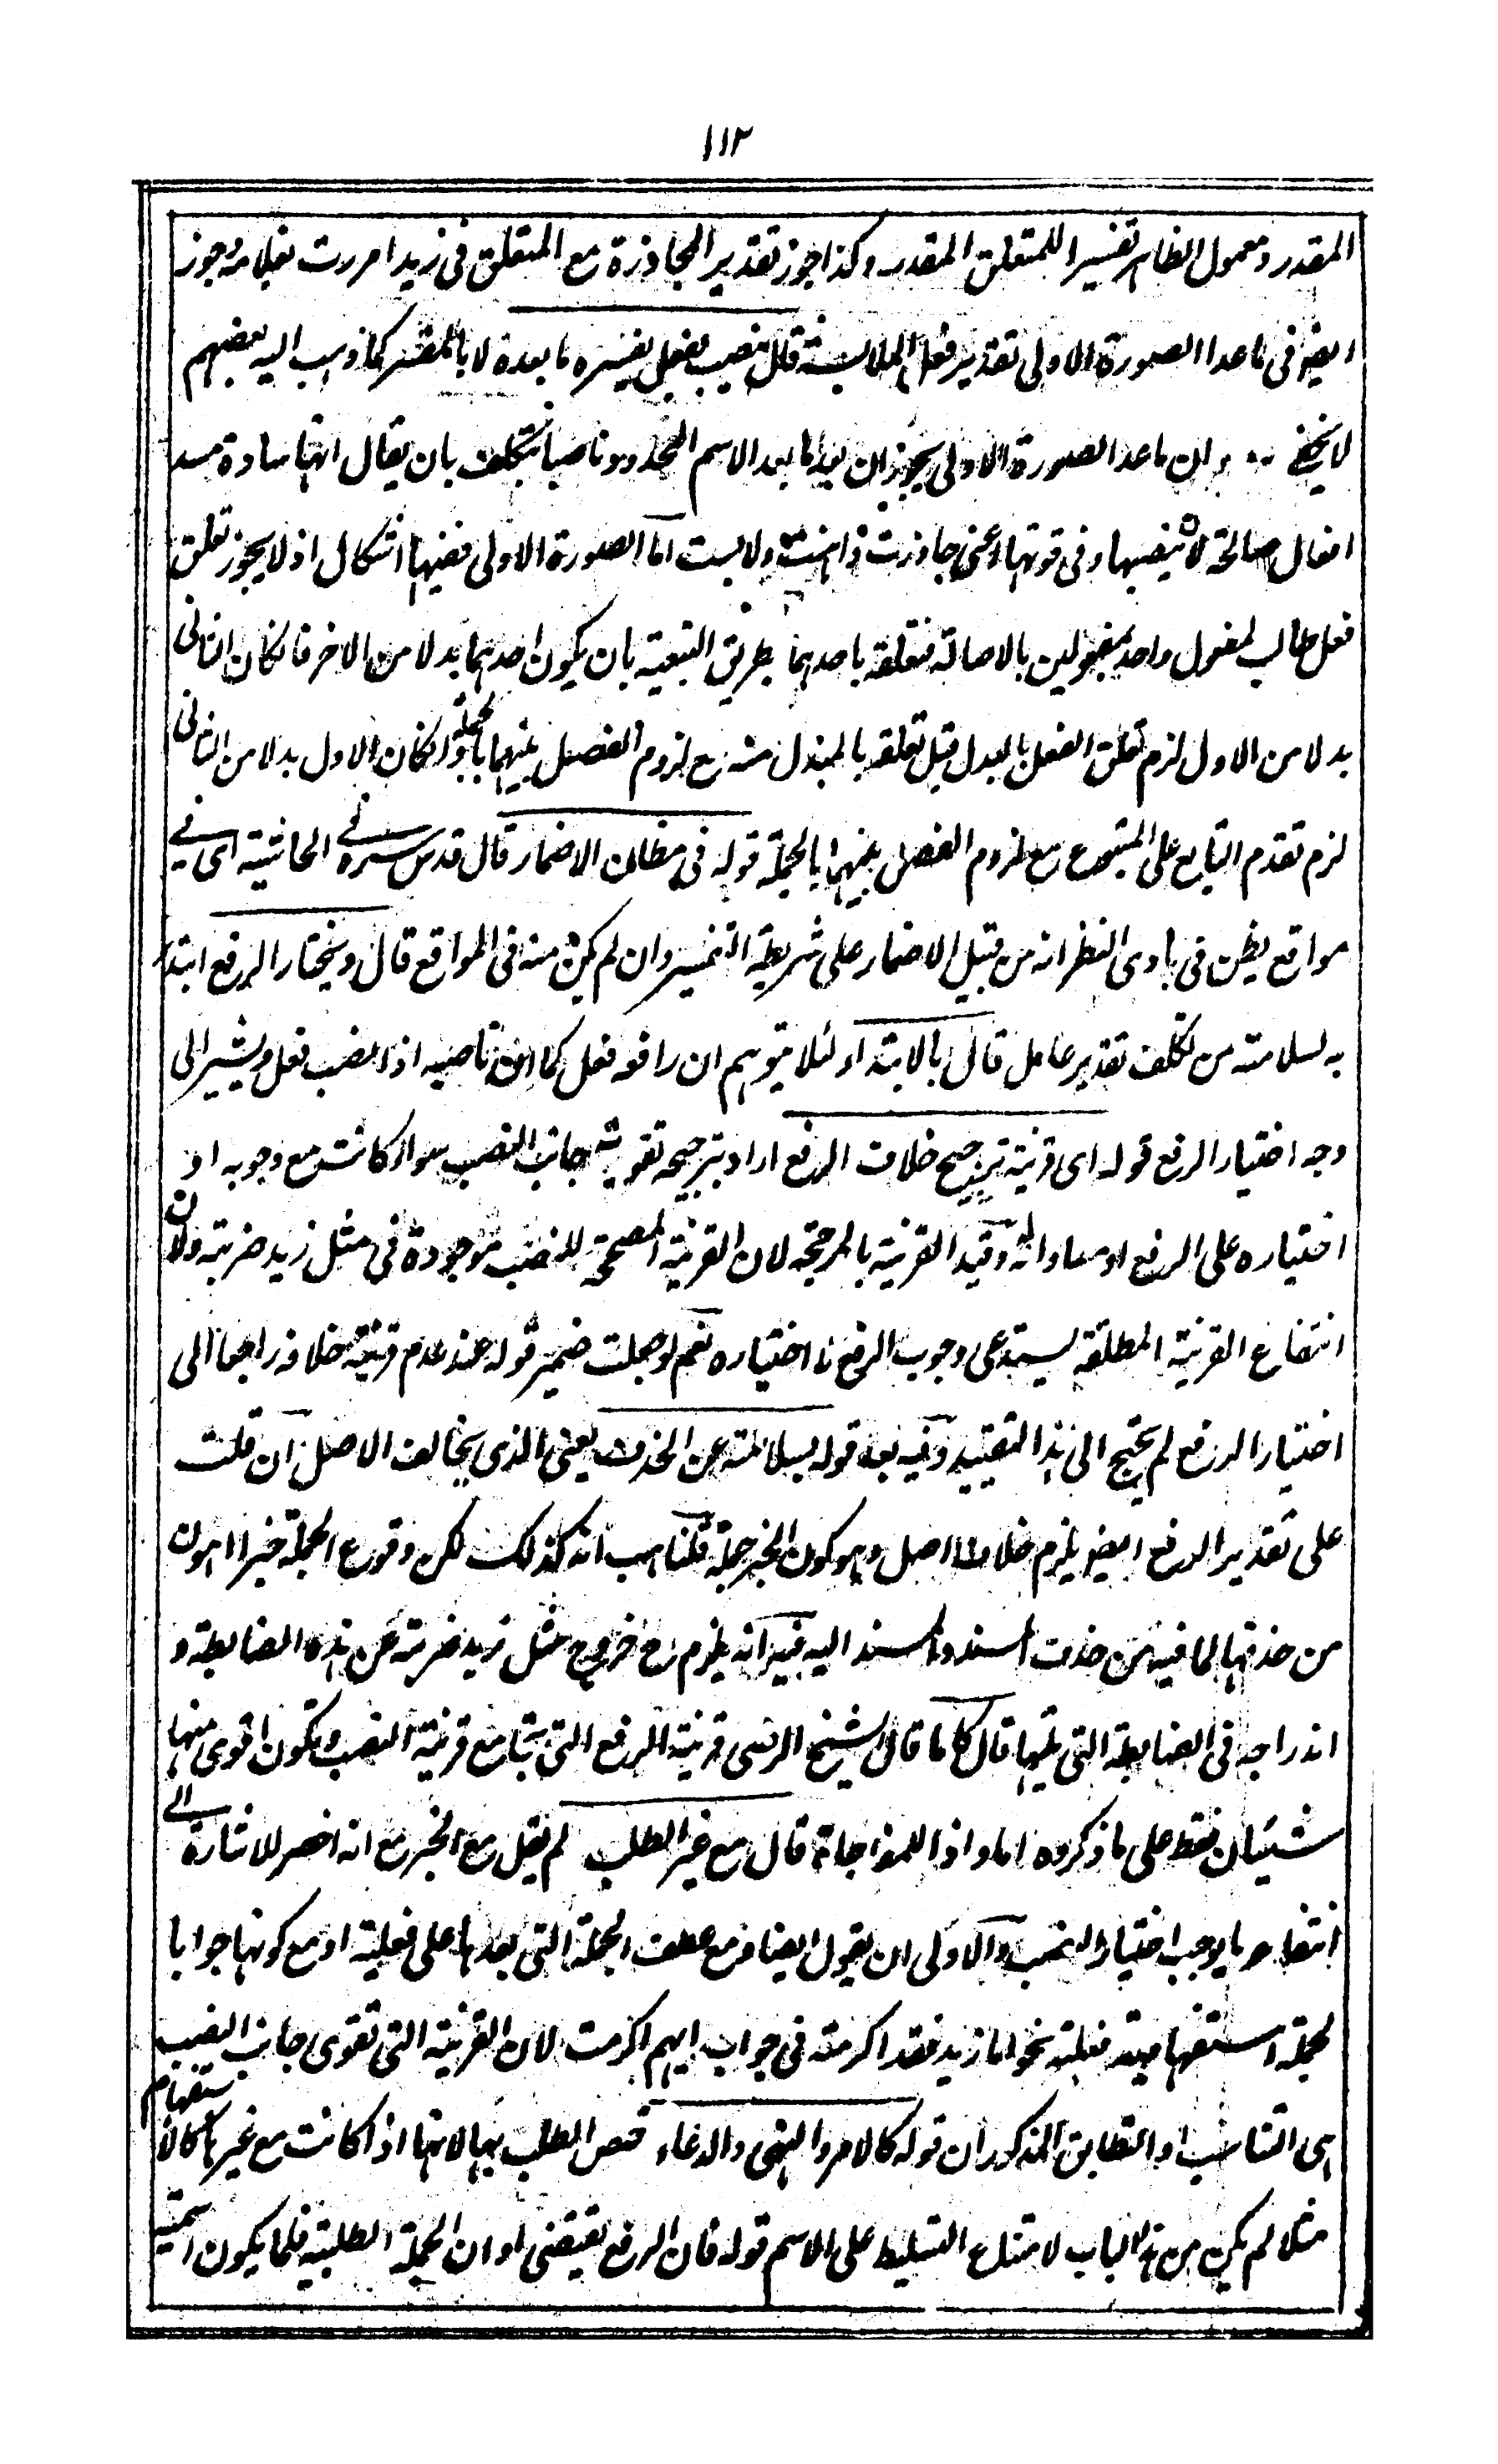 ١١٢
المقدر ومعمول الظاهر تفسيرا للمتعلق المقدر وكذا جوز تقدير المجاوزة مع المتعلق فى زيدا مررت بغلامه وجوز
ايضو فى ما عدا الصورة الاولى تقدير فعل الملابسة قال ينصب بفعل يفسره ما بعده لا بالمفسر كما ذهب اليه بعضهم
لا يخفى ان ما عدا الصورة الاولى يجوز ان يعد ما بعد الاسم المحدود ناصبا بتكلف بان يقال انها سادة مسد
افعال صالحة لان ينصبها وفى قوتها اعنى جاوزت و اهنت ولابست اما الصورة الاولى ففيها اشكال اذ لا يجوز تعلق
فعل طالب لمفعول واحد بمفعولين بالاصالة فتعلقه باحدهما بطريق التبعية بان يكون احدهما بدلا من الاخر فانكان الثانى
بدلا من الاول لزم تعلق الفعل بالبدل قبل تعلقه بالمبدل منه مع لزوم الفصل بينهما بالجملة وانكان الاول بدلا من الثانى
لزم تقدم التابع على المتبوع مع لزوم الفصل بينهما بالجملة قوله فى مظان الاضمار قال قدس سره فى الحاشية اى فى
مواقع يظن فى بادى النظر انه من قبيل الاضمار على شريطة التفسير وان لم يكن منه فى المواقع قال ويختار الرفع ابتداء
به لسلامته من تكلف تقدير عامل قال بالابتداء لئلا يتوهم ان رافعه فعل كما ان ناصبه اذا نصب فعل ويشير الى
وجه اختيار الرفع قوله اى قرينة ترجيح خلاف الرفع اراد بترجيحه تقوية جانب النصب سواء كانت مع وجوبه او
اختياره على الرفع او مساواته وقيد القرينة بالمرجحة لان القرينة المصححة للنصب موجودة فى مثل زيد ضربته ولان
انتفاع القرينة المطلقة يستدعى وجوب الرفع لا اختياره نعم لو جعلت ضمير قوله عند عدم قرينة خلافه راجعا الى
اختيار الرفع لم يحتج الى هذا التقييد وفيه بعد قوله بسلامته عن الحذف يعنى الذى يخالف الاصل ان قلت
على تقدير الرفع ايضو يلزم خلاف الاصل وهو كون الخبر جملة قلنا هب انه كذلك لكن وقوع الجملة خبرا اهون
من حذفها لما فيه من حذف المسند والمسند اليه فيه انه يلزم ح خروج مثل زيد ضربته عن هذه الضابطة و
اندراجه فى الضابطة التى تليها قال كاما قال الشيخ الرضى قرينة الرفع التى تجامع قرينة النصب وتكون اقوى منها
شيئان فقط على ما ذكروه اما و اذا للمفاجاة قال مع غير الطلب لم يقل مع الخبر مع انه اخصر للاشارة الى
انتفاء ما يوجب اختيار النصب والاولى ان يقول ايضا ومع عطف الجملة التى بعدها على فعلية او مع كونها جوابا
لجملة استفهامية فعلية نحو اما زيد فقد اكرمته فى جواب ايهم اكرمت لان القرينة التى تقوى جانب النصب
هى التناسب او التطابق المذكوران قوله كالامر والنهى والدعاء خص الطلب بها لانها اذا كانت مع غيرها كالاستفهام
مثلا لم يكن من هذا الباب لامتناع التسليط على الاسم قوله فان الرفع يقتضى او ان الجملة الطلبية فلما يكون اسمية